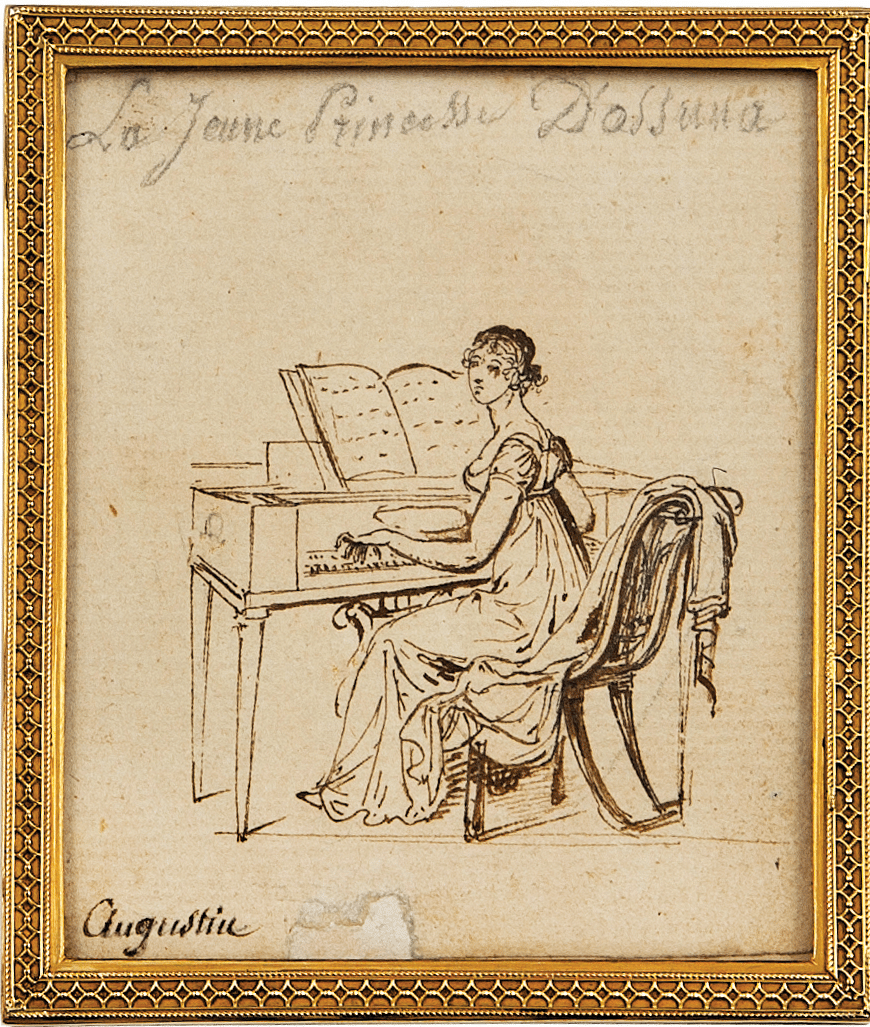 La Jeune Princesse D'ossuna
Augustin